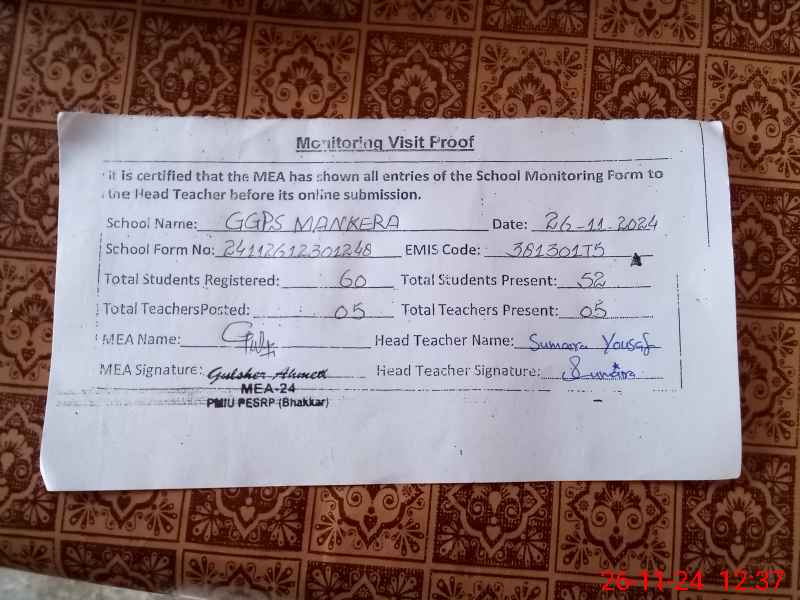 Monitoring Visit Proof
it is certified that the MEA has shown all entries of the School Monitoring Form to
the Head Teacher before its online submission.
School Name: GGPS MANKERA Date: 26-11-2024
School Form No: 24112612301248 EMIS Code: 38130175
Total Students Registered: 60 Total Students Present: 52
Total TeachersPosted: 05 Total Teachers Present: 05
MEA Name: Head Teacher Name: Sumaira Yousaf
MEA Signature: Gulsher Ahmed Head Teacher Signature: Sumaira
MEA-24
PMIU PESRP (Bhakkar)
26-11-24 12:37